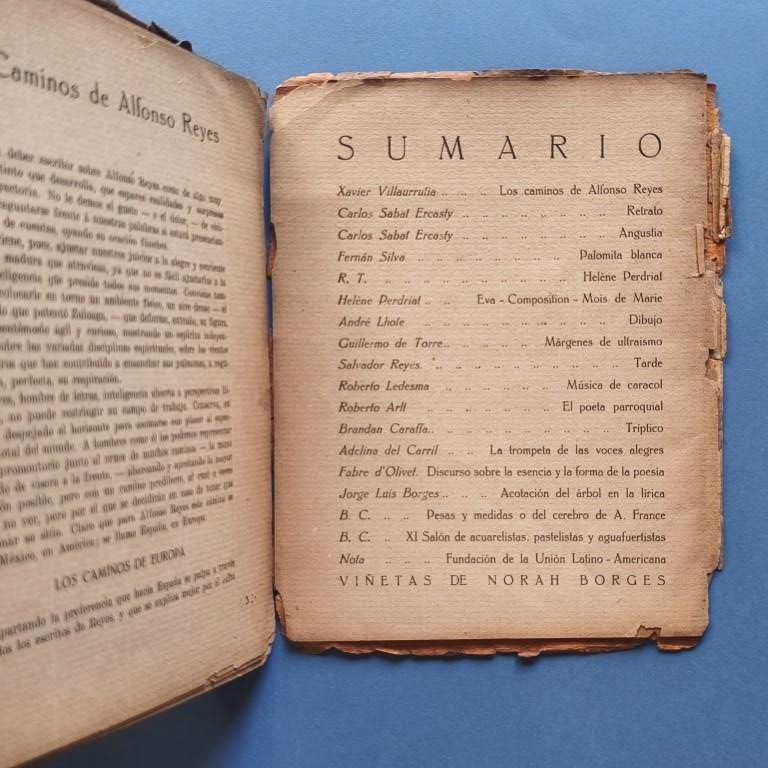 Caminos de Alfonso Reyes
deber escribir sobre Alfonso Reyes como de algo muy
que desarrolla, que espera realidades y sorpresas
No le demos el gusto — o el dolor, — de
preguntarse frente á nuestras palabras si estará
de cuentas, oyendo su oración fúnebre.
pues, ajustar nuestros juicios a la alegre y sonriente
madura que atraviesa, ya que no es fácil ajustarlos a la
inteligencia que preside todos sus momentos. Conviene
en torno un ambiente físico, un aire denso — el
que patentó Zuloaga, — que deforme, extraño, su figura.
ágil y curioso, mostrando un espíritu
sobre las variadas disciplinas espirituales, sobre los vientos
que han contribuído a ensanchar sus pulmones, a
perfecta, su respiración.
hombre de letras, inteligencia abierta a perspectivas
no puede restringir su campo de trabajo. Conserva, en
despejado el horizonte para asomarse con placer al
del mundo. A hombres como él les podemos representar
promontorio junto al cruce de muchos caminos — la mano
de visera a la frente, — abarcando y apretando la mayor
posible, pero con un camino predilecto, al cual a veces
no ver, pero por el que se decidirán en caso de tener que
su sitio. Claro que para Alfonso Reyes este camino se
México, en América; se llama España, en Europa.
LOS CAMINOS DE EUROPA
apartando la preferencia que hacia España se palpa a través
los escritos de Reyes, y que se explica mejor por el culto
3.
SUMARIO
Xavier Villaurrulia .. .. .. Los caminos de Alfonso Reyes
Carlos Sabat Ercasty .. .. .. .. .. .. .. .. Retrato
Carlos Sabat Ercasty .. .. .. .. .. .. .. .. Angustia
Fernán Silva .. .. .. .. .. .. .. Palomita blanca
R. T. .. .. .. .. .. .. .. .. Helène Perdriat
Helène Perdriat .. .. Eva - Composition - Mois de Marie
André Lhote .. .. .. .. .. .. .. .. Dibujo
Guillermo de Torre.. .. .. .. .. Márgenes de ultraismo
Salvador Reyes. .. .. .. .. .. .. .. .. Tarde
Roberto Ledesma .. .. .. .. .. .. Música de caracol
Roberto Arlt .. .. .. .. .. .. El poeta parroquial
Brandan Caraffa.. .. .. .. .. .. .. .. Tríptico
Adelina del Carril .. .. La trompeta de las voces alegres
Fabre d'Olivet. Discurso sobre la esencia y la forma de la poesía
Jorge Luis Borges .. .. .. Acotación del árbol en la lírica
B. C. .. .. Pesas y medidas o del cerebro de A. France
B. C. .. XI Salón de acuarelistas, pastelistas y aguafuertistas
Nota .. .. .. Fundación de la Unión Latino - Americana
VIÑETAS DE NORAH BORGES